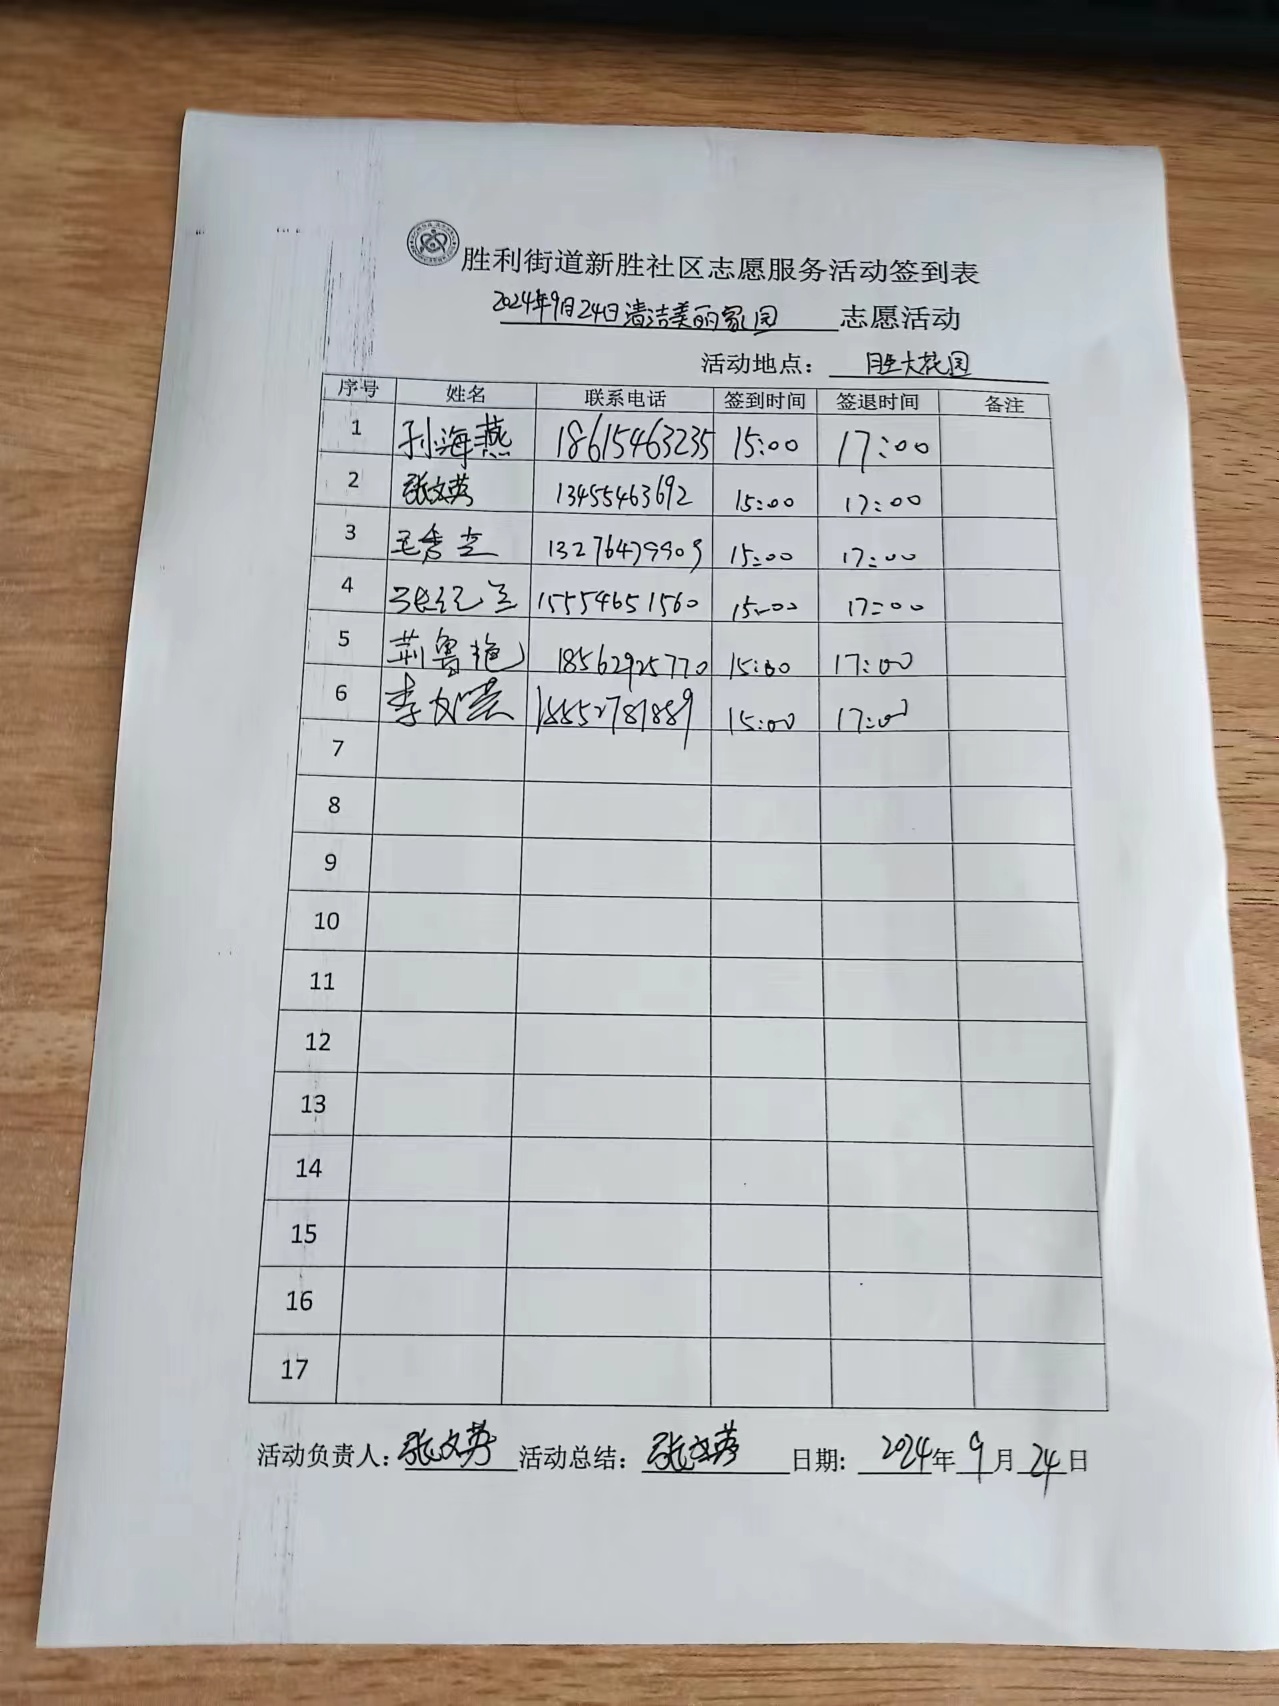 胜利街道新胜社区志愿服务活动签到表
2024年9月24日清洁美丽家园 志愿活动
活动地点： 胜大花园
序号 姓名 联系电话 签到时间 签退时间 备注
1 孙海燕 18615463235 15:00 17:00
2 张文英 13455463692 15:00 17:00
3 王秀兰 13276479909 15:00 17:00
4 张纪兰 15554651560 15:00 17:00
5 荆鲁艳 18562925770 15:00 17:00
6 李 15:00 17:00
7
8
9
10
11
12
13
14
15
16
17
活动负责人：张文英 活动总结：张文英 日期：2024年9月24日